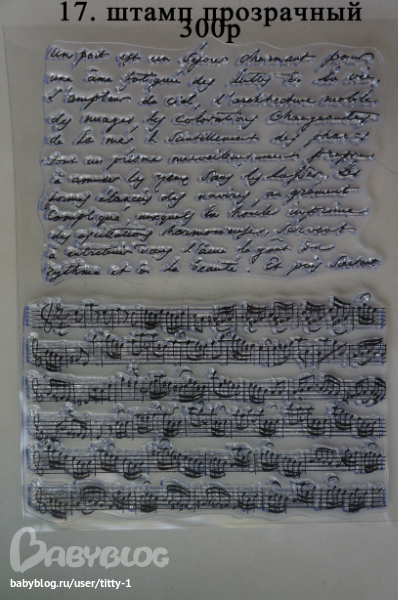 17. штамп прозрачный
300р
Un port est un séjour charmant pour
une âme fatiguée des luttes de la vie.
L'ampleur du ciel, l'architecture mobile
des nuages, les colorations changeantes
de la mer, le scintillement des phares
sont un prisme merveilleusement propre
à amuser les yeux sans les lasser. Les
formes élancées des navires, au gréement
compliqué, auxquels la houle imprime
des oscillations harmonieuses, servent
à entretenir dans l'âme le goût du
rythme et de la beauté. Et puis surtout
BABYBLOG
babyblog.ru/user/titty-1